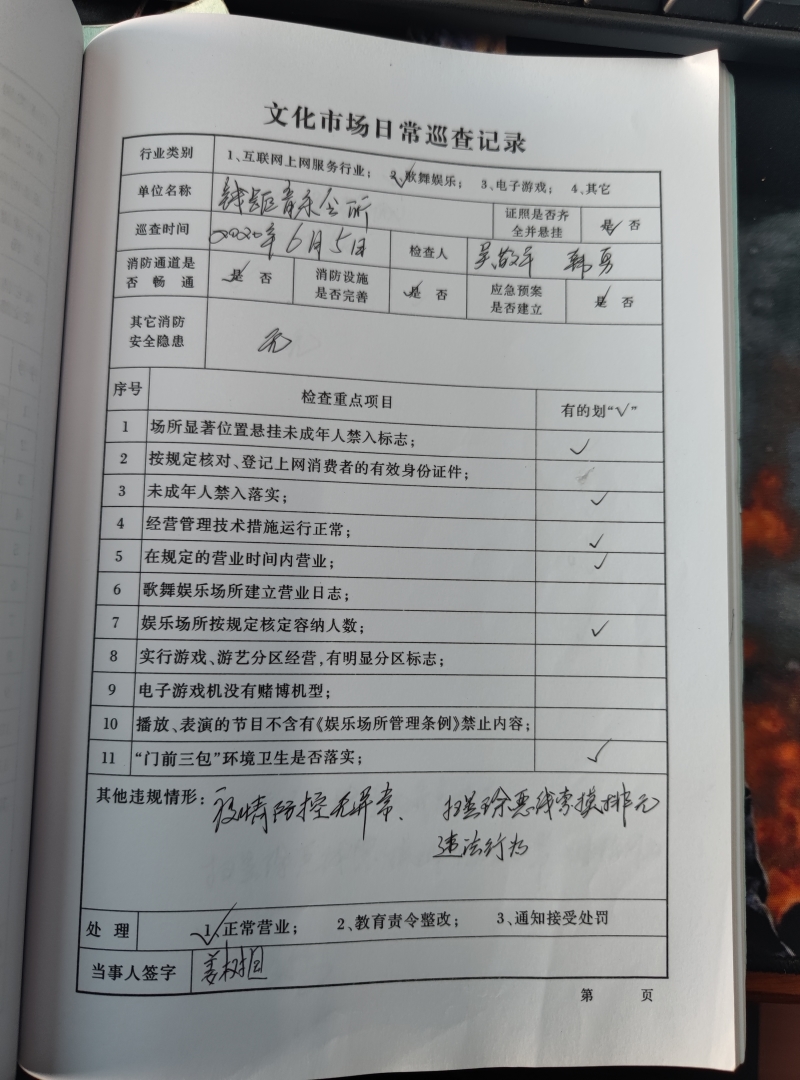 文化市场日常巡查记录
行业类别 1、互联网上网服务行业; 2、歌舞娱乐; 3、电子游戏; 4、其它
单位名称 钱距音乐会所 证照是否齐全并悬挂 是 √ 否
巡查时间 2020年6月5日 检查人 吴敬军 韩勇
消防通道是否畅通 是 √ 否 消防设施是否完善 是 √ 否 应急预案是否建立 是 √ 否
其它消防安全隐患 无
序号 检查重点项目 有的划“√”
1 场所显著位置悬挂未成年人禁入标志; √
2 按规定核对、登记上网消费者的有效身份证件;
3 未成年人禁入落实; √
4 经营管理技术措施运行正常; √
5 在规定的营业时间内营业; √
6 歌舞娱乐场所建立营业日志;
7 娱乐场所按规定核定容纳人数; √
8 实行游戏、游艺分区经营,有明显分区标志;
9 电子游戏机没有赌博机型;
10 播放、表演的节目不含有《娱乐场所管理条例》禁止内容;
11 “门前三包”环境卫生是否落实; √
其他违规情形: 疫情防控无异常、扫黑除恶线索摸排无
违法行为
处理 √ 1、正常营业; 2、教育责令整改; 3、通知接受处罚
当事人签字 姜树
第 页